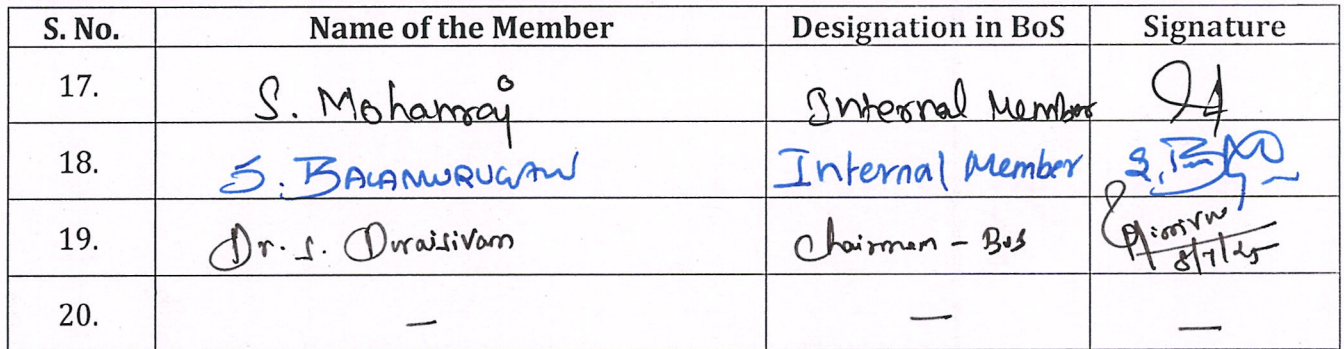 S. No. Name of the Member Designation in BoS Signature
17. S. Mohanraj Internal Member
18. S. BALAMURUGAN Internal Member
19. Dr. S. Duraisivam Chairman - BoS
8/7/25
20. — — —